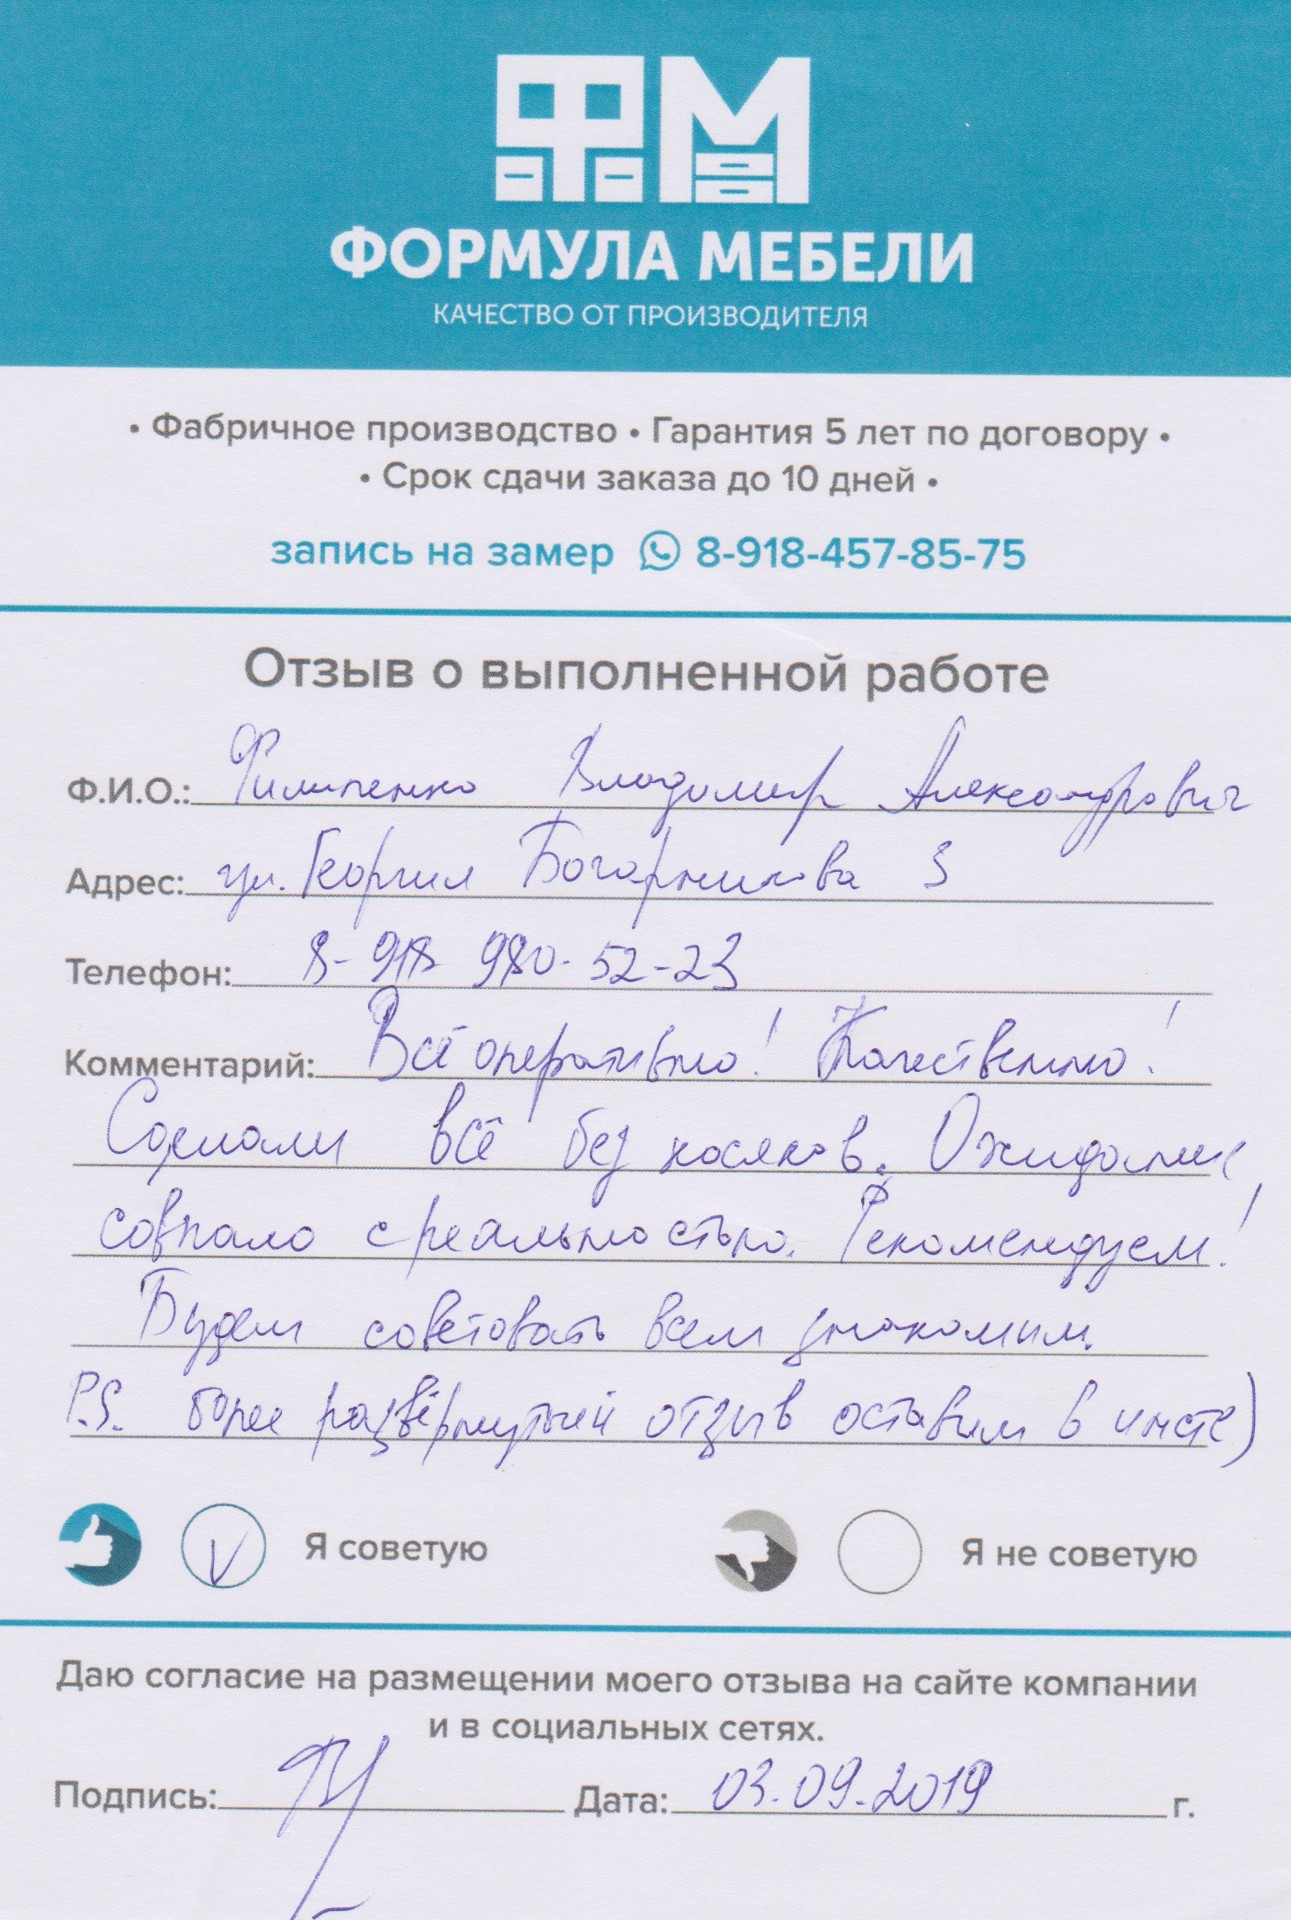 ФМ
ФОРМУЛА МЕБЕЛИ
КАЧЕСТВО ОТ ПРОИЗВОДИТЕЛЯ
• Фабричное производство • Гарантия 5 лет по договору •
• Срок сдачи заказа до 10 дней •
запись на замер 8-918-457-85-75
Отзыв о выполненной работе
Ф.И.О.: Филипенко Владимир Александрович
Адрес: ул. Георгия 3
Телефон: 8-918 980-52-23
Комментарий: Всё оперативно! Качественно!
Сделали всё без косяков. Ожидание
совпало с реальностью. Рекомендуем!
Будем советовать всем знакомым.
P.S. более развёрнутый отзыв оставим в инсте)
Я советую
Я не советую
Даю согласие на размещении моего отзыва на сайте компании
и в социальных сетях.
Подпись: Дата: 03.09.2019 г.